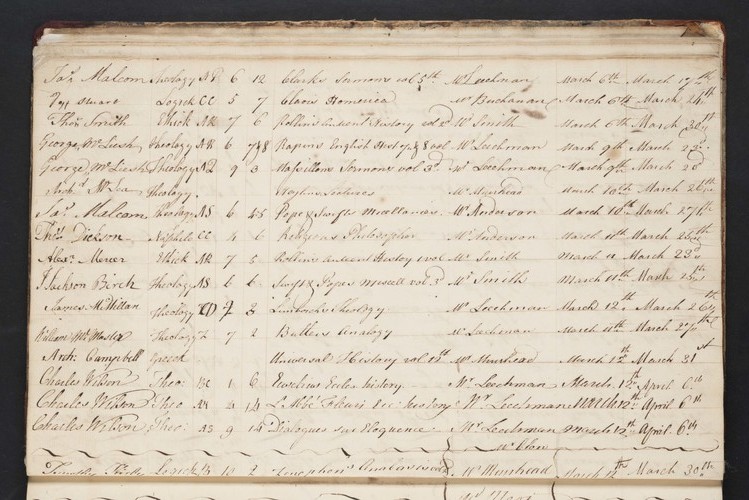 Jas. Malcom Theology AR 6 12 Clarks Sermons vol 5th Mr Leechman March 6th March 17th
Stuart Logick CC 5 7 Clavis Homerica Mr Buchanan March 6th March 24th
Thos Smith Ethick AR 7 6 Rollins Antient History vol 2d Mr Smith March 6th March 30th
George McLeish Theology AR 6 7&8 Rapins English Hist 7&8 vol Mr Leechman March 9th March 23d
George McLeish Theology 9 3 Massillons Sermons vol 3d Mr Leechman March 9th March 23d
Theology Lectures Mr Muirhead March 10th March 26th
Jas. Malcom Theology AS 6 4 5 Pope & Swifts Miscellanies Mr Anderson March 11th March 27th
Thos. Dickson CC 4 6 Religious Philosopher Mr Anderson March 11th March 23d
Alexr. Mercer Ethick AR 7 5 Rollins Antient History vol Mr Smith March 11 March 23d
Jackson Birch Theology AS 6 6 Swift & Popes Miscell vol 3d Mr Smith March 11th March 23d
James McMillan Theology 2 Limborchs Theology Mr Leechman March 12th March 26th
William McMaster Theology 7 2 Butlers Analogy Mr Leechman March 11th March 27th
Arch. Campbell Greek Universal History vol Mr Muirhead March 12th March 31st
Charles Wilson Theo: BC 1 6 Eusebius Eccles history Mr Leechman March 12th April 6th
Charles Wilson Theo AR 4 14 L'Abbé Fleuri Ecc history Mr Leechman March 12th April 6th
Charles Wilson Theo: AS 9 14 Dialogues sur Eloquence Mr Leechman March 12th April 6th
Mr Clow
Logick Xenophons Anabasis Mr Muirhead March 12th March 30th